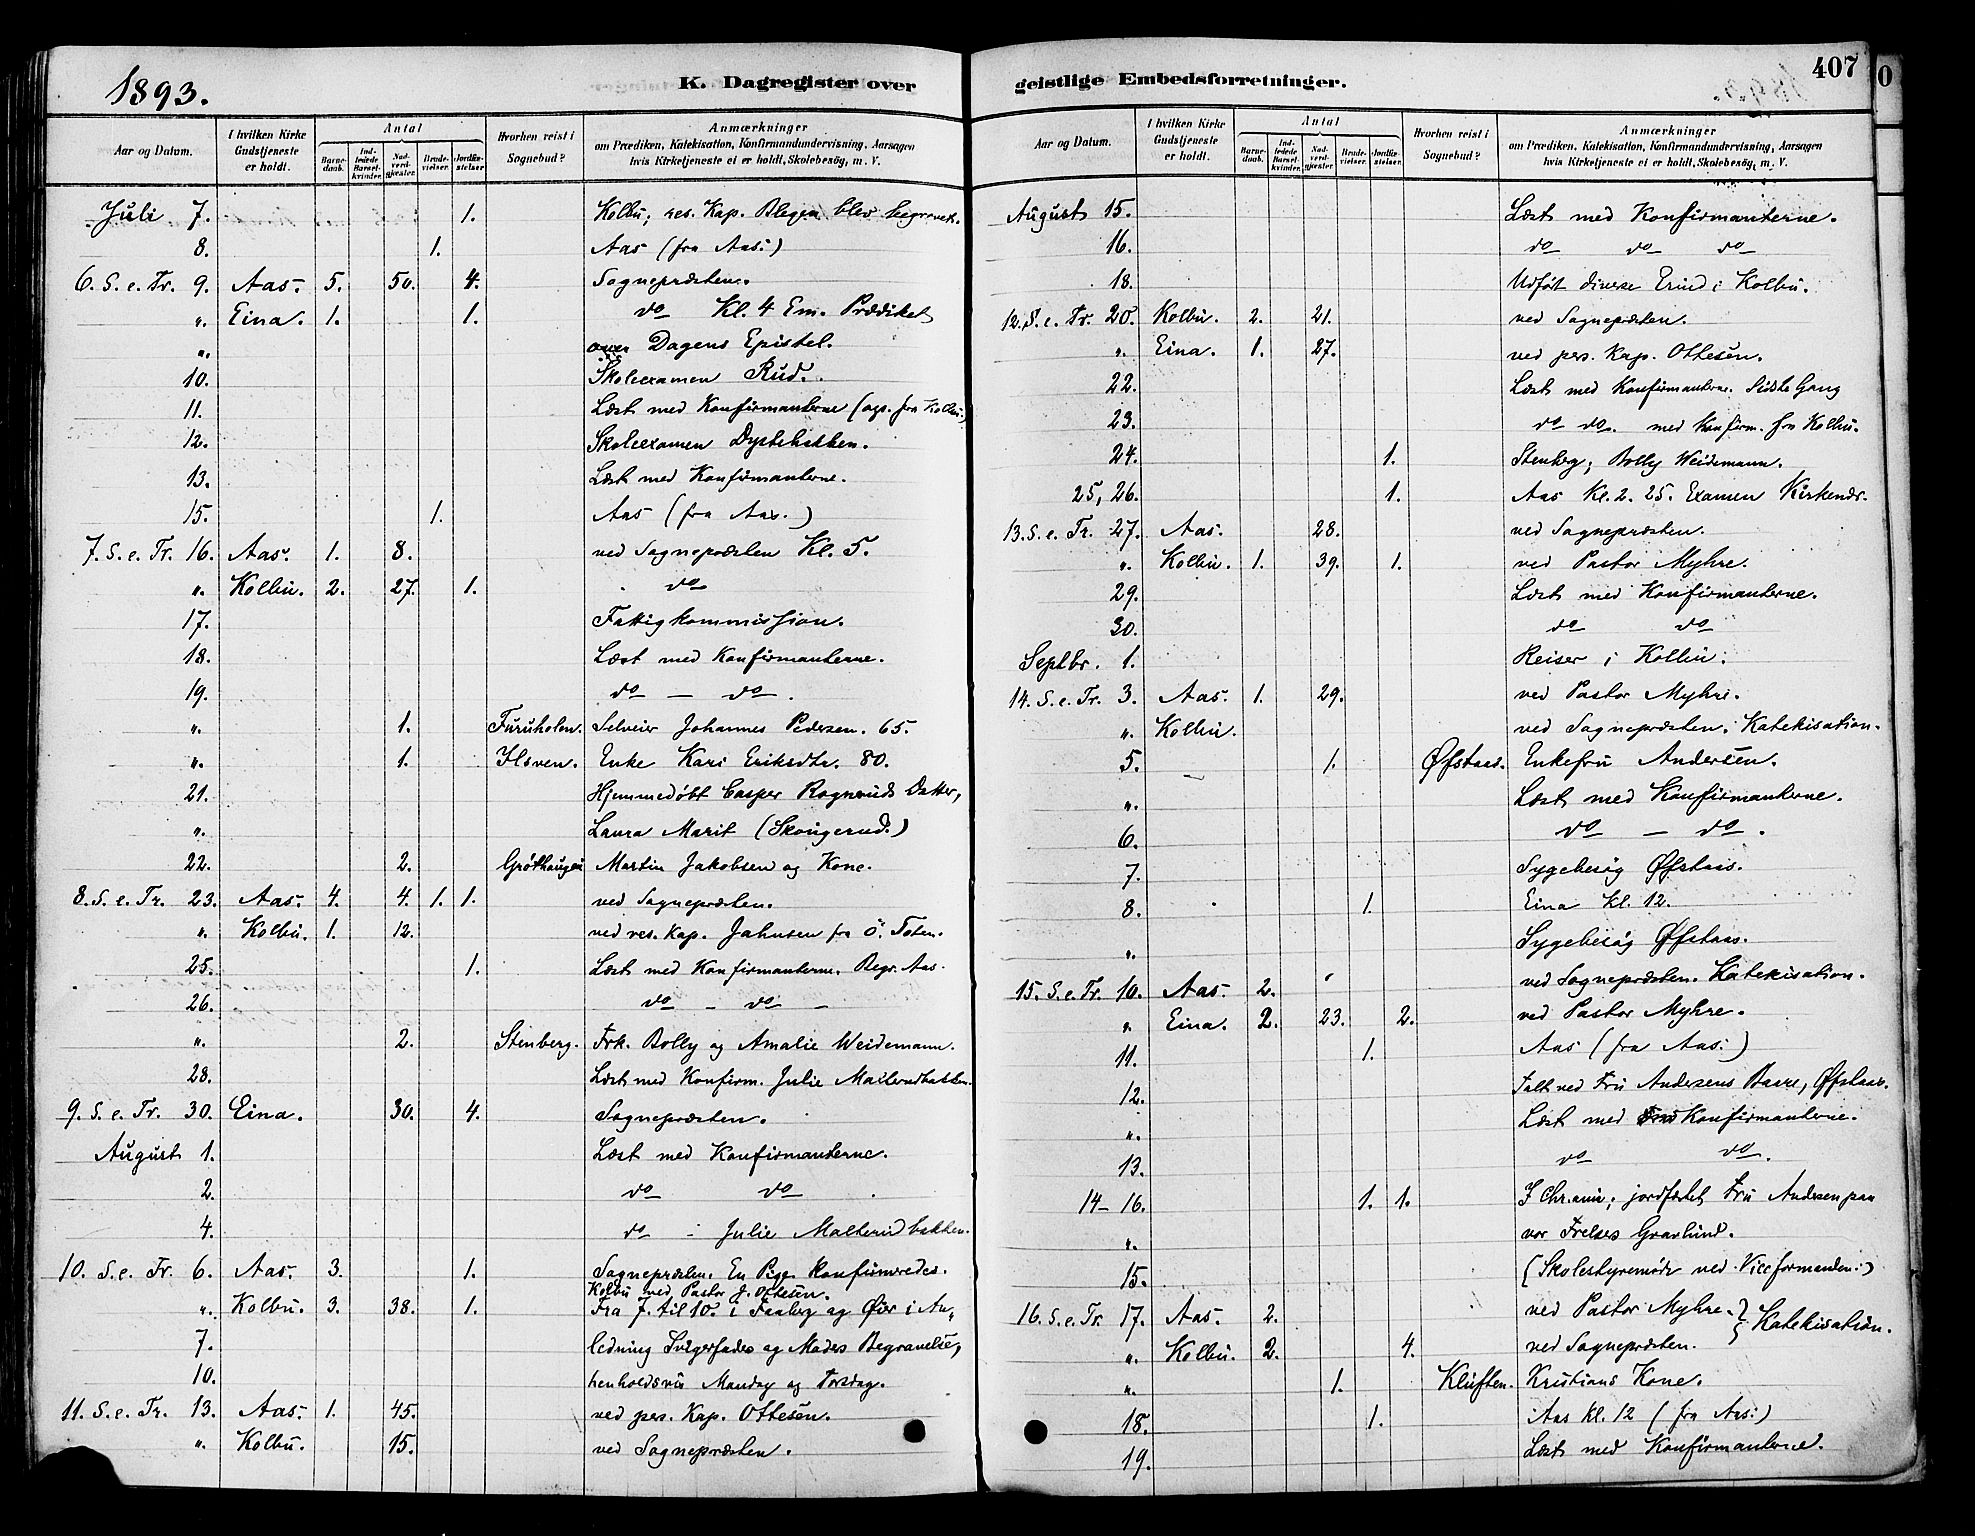 1893.
K. Dagregister over
Aar og Datum.
I hvilken Kirke Gudstjeneste er holdt.
Antal
Barnedaab.
Indledede Barselkvinder.
Nadverdgjester.
Brudevielser.
Jordfæstelser
Hvorhen reist i Sognebud?
Anmærkninger
om Prædiken, Katekisation, Konfirmandundervisning, Aarsagen
hvis Kirketjeneste ei er holdt, Skolebesög, m. V.
Juli 7. 1. Kolbu; res. Kap. Blegen blev begravet.
8. 1. Aas (fra Aas.)
6. S. e. Tr. 9. Aas. 5. 50. 4. Sognepræsten.
". Eina. 1. 1. do Kl. 4 Em. Prædiket
". over Dagens Epistel.
10. Skoleexamen Rud.
11. Læst med Konfirmanterne (ogs. fra Kolbu.)
12. Skoleexamen Dystebakken.
13. Læst med Konfirmanterne.
15. 1. Aas (fra Aas.)
7. S. e. Tr. 16. Aas. 1. 8. ved Sognepræsten Kl. 5.
". Kolbu. 2. 27. 1. do
17. Fattigkommission.
18. Læst med Konfirmanterne.
19. do — do.
". 1. Furuholen. Selveier Johannes Pedersen. 65.
". 1. Ilsven. Enke Kari Eriksdtr. 80.
21. Hjemmedøbt Casper Rognruds Datter,
". Laura Marit (Skougerud.)
22. 2. Grøthaugen Martin Jakobsen og Kone.
8. S. e. Tr. 23. Aas. 4. 4. 1. 1. ved Sognepræsten.
". Kolbu. 1. 12. ved res. Kap. Jahnsen fra Ö. Toten.
25. 1. Læst med Konfirmanterne. Begr. Aas.
26. do — do —
". 2. Stenberg. Frk. Bolly og Amalie Weidemann.
28. Læst med Konfirm. Julie Malterudbakken.
9. S. e. Tr. 30. Eina. 30. 4. Sognepræsten.
August 1. Læst med Konfirmanterne.
2. do do
4. do - Julie Malterudbakken.
10. S. e. Tr. 6. Aas. 3. 1. Sognepræsten. En Pige konfirmeredes.
Kolbu ved Pastor J. Ottesen.
". Kolbu. 3. 38. 1. Fra 7. til 10. i Faaberg og Øier i An„
7. ledning Svigerfades og Mades Begravelse,
10. henholdsvis Mandag og Torsdag.
11. S. e. Tr. 13. Aas. 1. 45. ved pers. Kap. Ottesen.
". Kolbu. 15. ved Sognepræsten.
geistlige Embedsforretninger.
407
Aar og Datum.
I hvilken Kirke Gudstjeneste er holdt.
Antal
Barnedaab.
Indledede Barselkvinder.
Nadverdgjester.
Brudevielser.
Jordfæstelser
Hvorhen reist i Sognebud?
Anmærkninger
om Prædiken, Katekisation, Konfirmandundervisning, Aarsagen
hvis Kirketjeneste ei er holdt, Skolebesög, m. V.
August 15. Læst med Konfirmanterne.
16. do do do
18. Udført diverse Erind i Kolbu.
12. S. e. Tr. 20. Kolbu. 2. 21. ved Sognepræsten.
". Eina. 1. 27. ved pers. Kap. Ottesen.
22. Læst med Konfirmanterne. Sidste Gang
23. do do. med Konfirm. fra Kolbu.
24. 1. Stenberg; Bolly Weidemann.
25, 26. 1. Aas Kl. 2. 25. Examen Kirkendr.
13. S. e. Tr. 27. Aas. 28. ved Sognepræsten.
". Kolbu. 1. 39. 1. ved Pastor Myhre.
29. Læst med Konfirmanterne.
30. do do
Septbr. 1. Reiser i Kolbu.
14. S. e. Tr. 3. Aas. 1. 29. ved Pastor Myhre.
". Kolbu. ved Sognepræsten. Katekisation.
5. 1. Øfstaas. Enkefru Andersen.
". Læst med Konfirmanterne.
6. do — do.
7. Sygebesøg Øfstaas.
8. 1. Eina Kl. 12.
". Sygebesøg Øfstaas.
15. S. e. Tr. 10. Aas. 2. ved Sognepræsten. Katekisation.
". Eina. 2. 23. 2. ved Pastor Myhre.
11. 1. Aas (fra Aas.)
12. Talt ved Fru Andersens Baare, Øfstaas.
". Læst med Konfirmanterne.
13. do do.
14–16. 1. 1. I Chr.ania; jordfæstet Fru Andersen paa
". vor Frelsers Gravlund.
15. (Skolestyremøde ved Viceformanden.)
16. S. e. Tr. 17. Aas. 2. ved Pastor Myhre. } Katekisation.
". Kolbu. 2. 4. ved Sognepræsten.
". 1. Kluften. Kristians Kone.
18. 1. Aas Kl. 12 (fra Aas.)
19. Læst med Konfirmanterne.